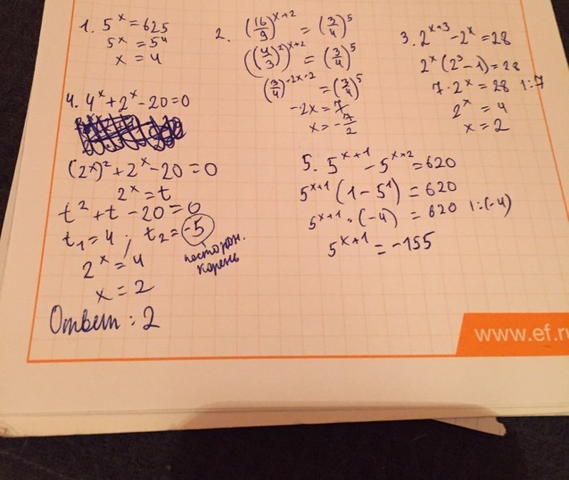 1. 5^x = 625
5^x = 5^4
x = 4
2. (16/9)^x+2 = (3/4)^5
((4/3)^2)^x+2 = (3/4)^5
(3/4)^-2x-2 = (3/4)^5
-2x = 7
x = -7/2
3. 2^x+3 - 2^x = 28
2^x (2^3 - 1) = 28
7 · 2^x = 28 | : 7
2^x = 4
x = 2
4. 4^x + 2^x - 20 = 0
(2^x)^2 + 2^x - 20 = 0
2^x = t
t^2 + t - 20 = 0
t1 = 4 ; t2 = -5
посторон.
корень
2^x = 4
x = 2
Ответ : 2
5. 5^x+1 - 5^x+2 = 620
5^x+1 (1 - 5^1) = 620
5^x+1 · (-4) = 620 | : (-4)
5^x+1 = -155
www.ef.r